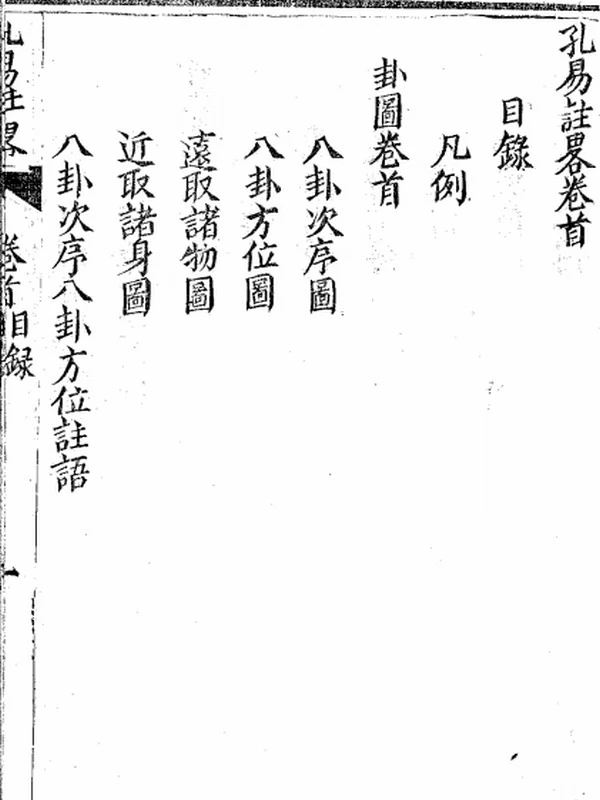 孔易註畧卷首
目錄
凡例
卦圖卷首
八卦次序圖
八卦方位圖
遠取諸物圖
近取諸身圖
八卦次序八卦方位註語
孔易註畧
卷首目録
一